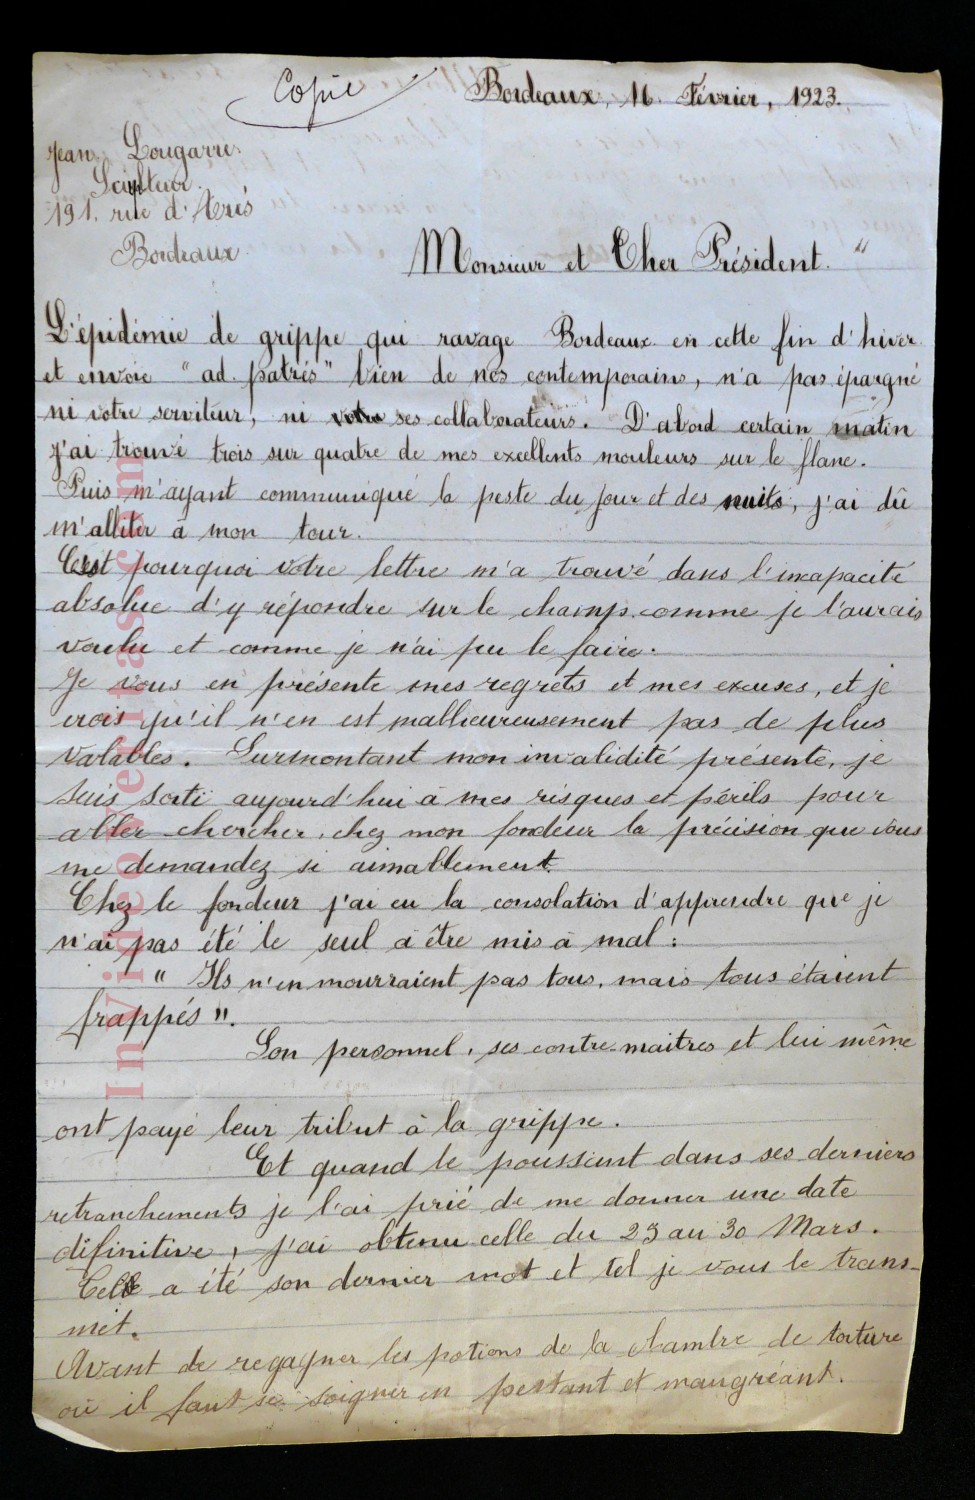 Copie
Bordeaux, 16 Février, 1923.
Jean Lougarre
Sculteur.
191, rue d'Arés
Bordeaux
Monsieur et Cher Président. "
L'épidémie de grippe qui ravage Bordeaux en cette fin d'hiver
et envoie "ad. patrés" bien de nos contemporains, n'a pas épargné
ni votre serviteur, ni votre ses collaborateurs. D'abord certain matin
j'ai trouvé trois sur quatre de mes excellents mouleurs sur le flanc.
Puis m'ayant communiqué la peste du jour et des nuits, j'ai dû
m'alliter à mon tour.
C'est pourquoi votre lettre m'a trouvé dans l'incapacité
absolue d'y répondre sur le champ comme je l'aurais
voulu et comme je n'ai pu le faire.
Je vous en présente mes regrets et mes excuses, et je
crois qu'il n'en est malheureusement pas de plus
valables. Surmontant mon invalidité présente, je
suis sorti aujourd'hui à mes risques et périls pour
aller chercher, chez mon fondeur la précision que vous
me demandez si aimablement.
Chez le fondeur j'ai eu la consolation d'apprendre que je
n'ai pas été le seul à être mis à mal :
" Ils n'en mourraient pas tous, mais tous étaient
frappés ".
Son personnel, ses contre-maitres et lui même
ont payé leur tribut à la grippe.
Et quand le poussant dans ses derniers
retranchements je l'ai prié de me donner une date
difinitive, j'ai obtenu celle du 25 au 30 Mars.
Tel a été son dernier mot et tel je vous le trans-
met.
Avant de regagner les potions de la chambre de torture
où il faut se soigner en pestant et maugréant.
InVideoVeritas.com